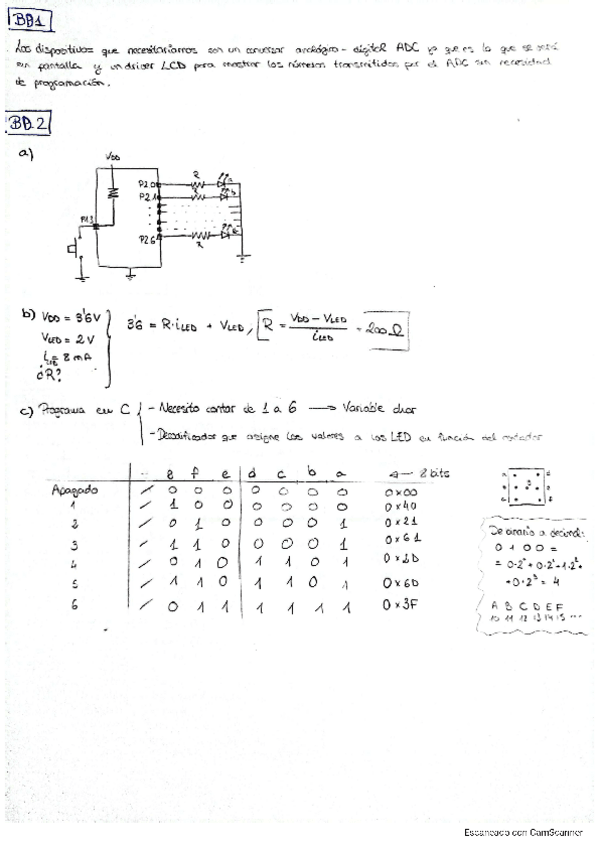 BD1
Los dispositivos que necesitaríamos son un conversor analógico-digital ADC ya que es lo que se verá
en pantalla y un driver LCD para mostrar los números transmitidos por el ADC sin necesidad
de programación.
BD.2
a)
VDD
P2.0 R a
P2.1 R b
P1.3
P2.6 R
b) VDD = 3'6V
VLED = 2V
iLED = 8 mA
¿R?
3'6 = R·iLED + VLED, R = VDD - VLED / iLED = 200 Ω
c) Programa en C
- Necesito contar de 1 a 6 → Variable char
- Decodificador que asigne los valores a los LED en función del contador
- g f e d c b a ← 8 bits
Apagado / 0 0 0 0 0 0 0 0x00
1 / 1 0 0 0 0 0 0 0x40
2 / 0 1 0 0 0 0 1 0x21
3 / 1 1 0 0 0 0 1 0x61
4 / 0 1 0 1 1 0 1 0x2D
5 / 1 1 0 1 1 0 1 0x6D
6 / 0 1 1 1 1 1 1 0x3F
De binario a decimal:
0 1 0 0 =
= 0·2⁰ + 0·2¹ + 1·2² +
+ 0·2³ = 4
A B C D E F
10 11 12 13 14 15 ...
Escaneado con CamScanner